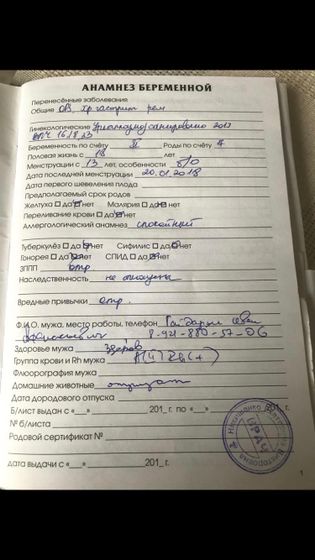 АНАМНЕЗ БЕРЕМЕННОЙ
Перенесённые заболевания
Общие ОВ, хр гастрит рем
Гинекологические 2017
Беременность по счёту II Роды по счёту
Половая жизнь с 18 лет
Менструации с 13 лет, особенности б/о
Дата последней менструации 20.01.2018
Дата первого шевеления плода
Предполагаемый срок родов
Желтуха □ да □ нет Малярия □ да □ нет
Переливание крови □ да □ нет
Аллергологический анамнез спокойный
Туберкулёз □ да □ нет Сифилис □ да □ нет
Гонорея □ да □ нет СПИД □ да □ нет
ЗППП отр
Наследственность не отягощена
Вредные привычки отр.
Ф.И.О. мужа, место работы, телефон
8-921-880-57-06
Здоровье мужа здоров
Группа крови и Rh мужа Rh(+)
Флюорография мужа
Домашние животные отрицает
Дата дородового отпуска
Б/лист выдан с «__» 201_ г. по «__» 201_ г.
№ б/листа
Родовой сертификат №
дата выдачи с «__» 201_ г.
ВРАЧ
1